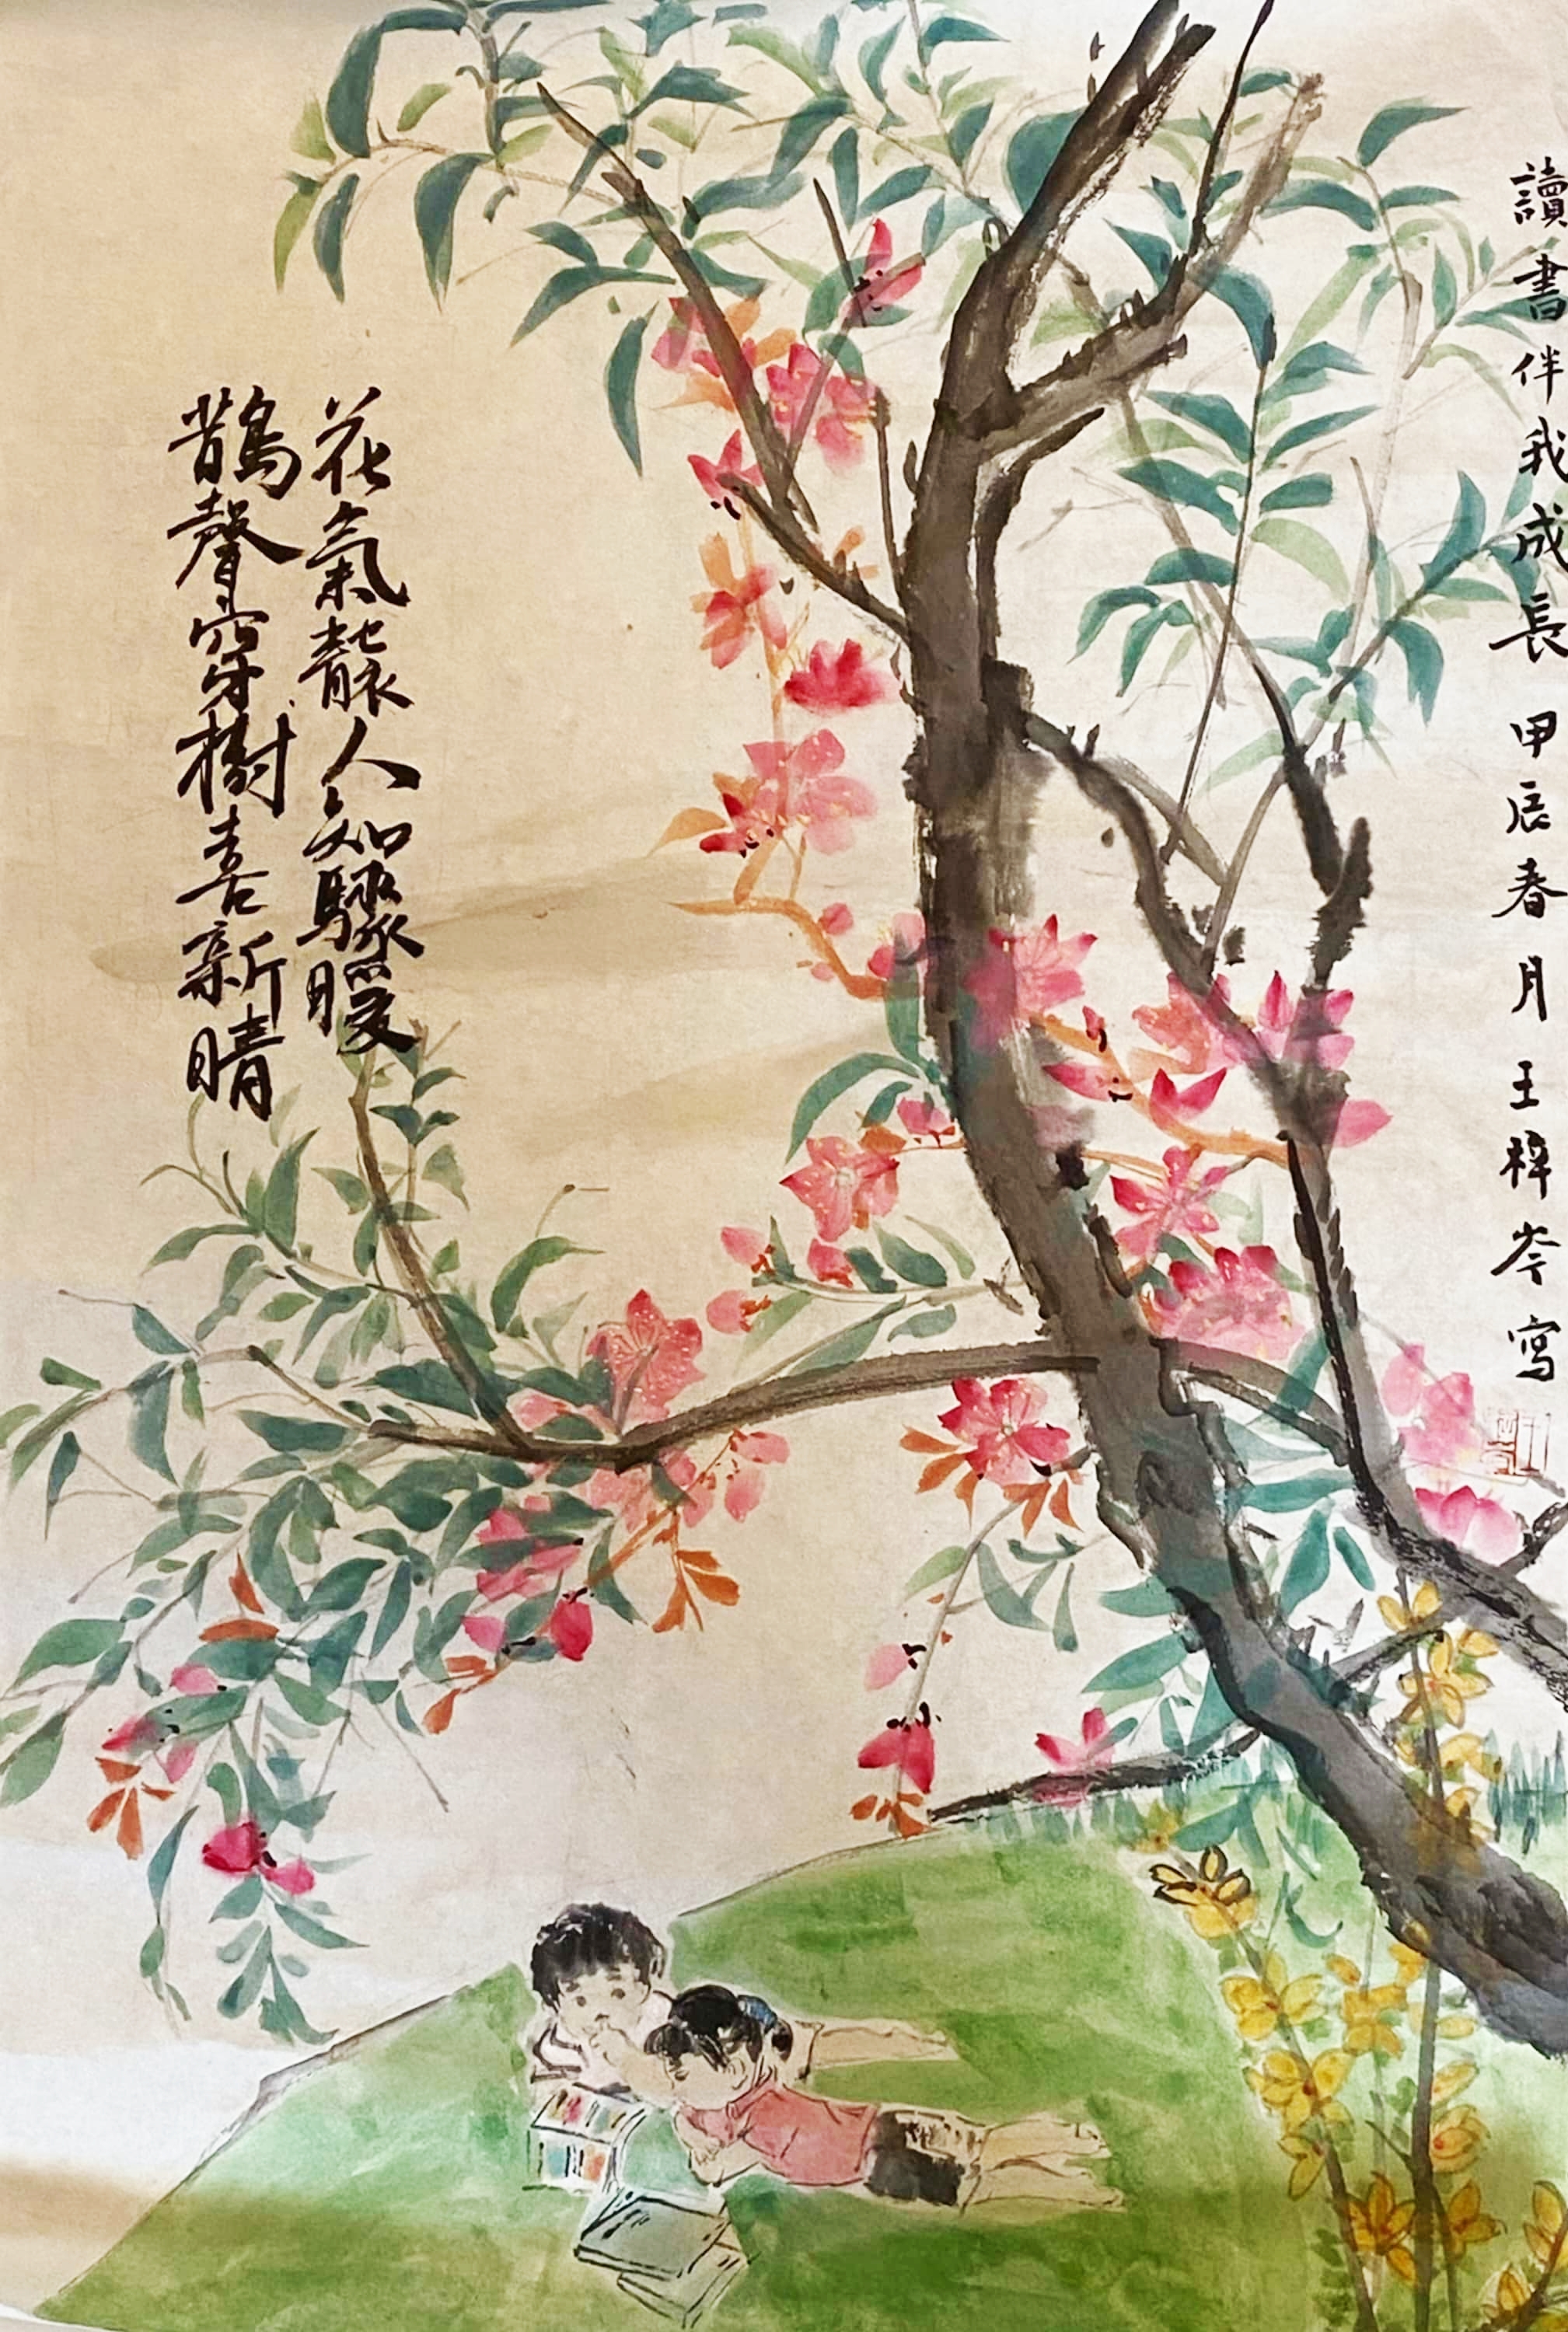 讀書伴我成長 甲辰春月 王梓岑寫
花氣襲人知驟暖
鵲聲穿樹喜新晴